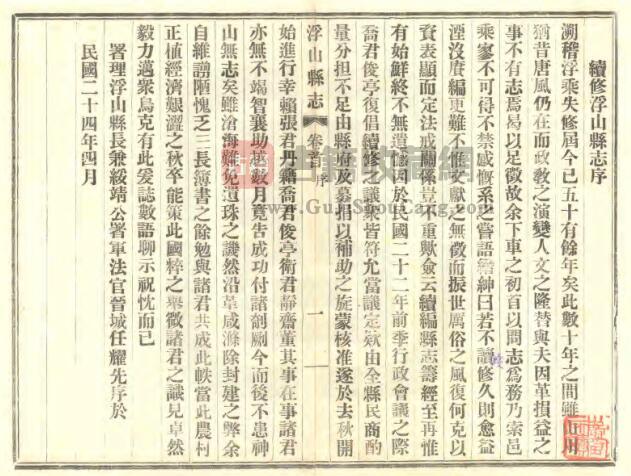 續修浮山縣志序
溯稽浮乘失修屆今已五十有餘年矣此數十年之間雖山川
猶昔唐風仍在而政教之演變人文之隆替與夫因革損益之
事不有志焉曷以足徵故余下車之初首以問志為務乃索邑
乘寥不可得不禁感慨系之嘗語縉紳曰若不讀修久則愈益
湮沒賡編更難不惟文獻之無徵而振世厲俗之風復何克以
資表顯而定法戒關係豈不重歟僉云續編縣志籌經至再惟
有始鮮終不無遺憾因於民國二十二年前季行政會議之際
喬君俊亭復倡續修之議衆皆符允當議定欵由全縣民商酌
量分担不足由縣府及募捐以補助之旋蒙核准遂於去秋開
浮山縣志 卷首 序 一
始進行幸賴張君丹鷄喬君俊亭衛君靜齋董其事在事諸君
亦無不竭智襄助越數月竟告成功付諸剞劂今而後不患神
山無志矣雖滄海難免遺珠之譏然沿革咸滌除封建之弊余
自維謭陋愧乏三長簿書之餘勉與諸君共成此帙當此農村
正值經濟艱澀之秋卒能策此國粹之舉徵諸君之識見卓然
毅力邁衆烏克有此爰誌數語聊示祝忱而已
署理浮山縣長兼綏靖公署軍法官晉城任耀先序於
民國二十四年四月
古籍收藏網
www.GujiShouCang.com